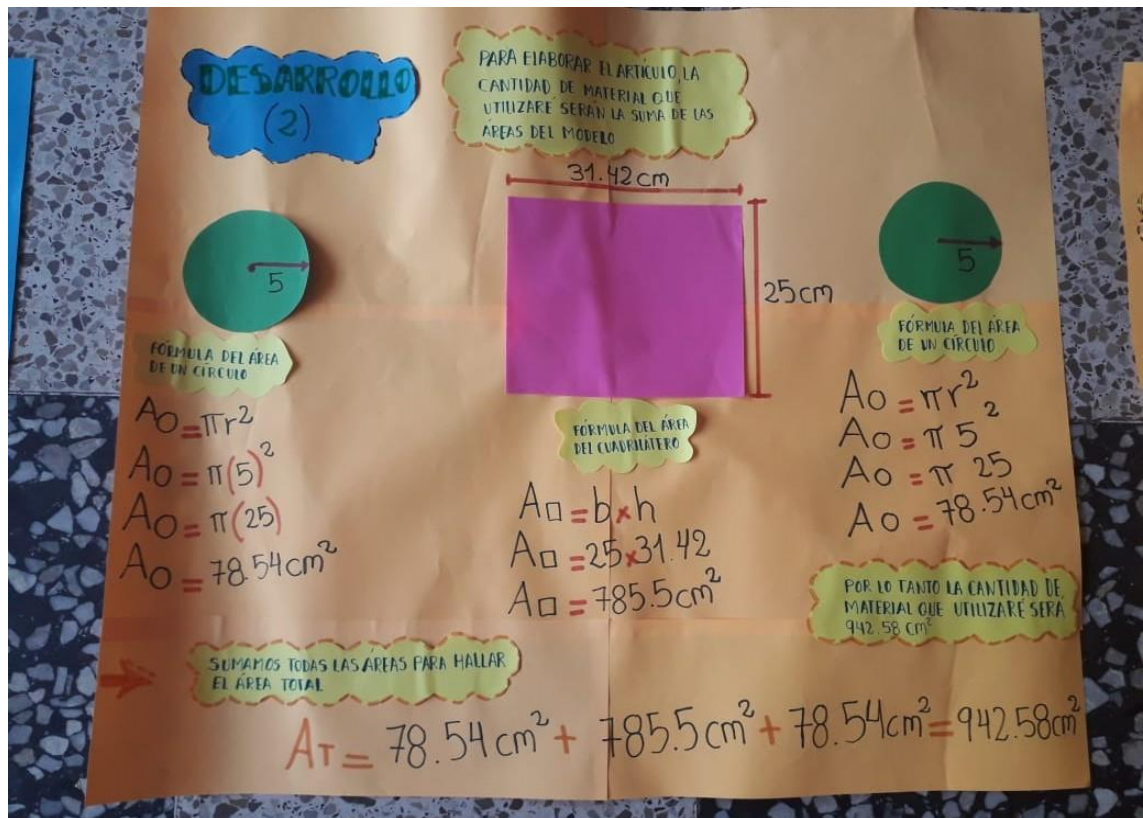 DESARROLLO
(2)
PARA ELABORAR EL ARTÍCULO, LA
CANTIDAD DE MATERIAL QUE
UTILIZARÉ SERÁN LA SUMA DE LAS
ÁREAS DEL MODELO
5
FÓRMULA DEL ÁREA
DE UN CÍRCULO
AO = πr²
AO = π(5)²
AO = π(25)
AO = 78.54cm²
31.42cm
25cm
FÓRMULA DEL ÁREA
DEL CUADRILÁTERO
A□ = b×h
A□ = 25×31.42
A□ = 785.5cm²
5
FÓRMULA DEL ÁREA
DE UN CÍRCULO
AO = πr²
AO = π 5²
AO = π 25
AO = 78.54cm²
POR LO TANTO LA CANTIDAD DE
MATERIAL QUE UTILIZARÉ SERÁ
942.58 cm²
SUMAMOS TODAS LAS ÁREAS PARA HALLAR
EL ÁREA TOTAL
AT = 78.54cm² + 785.5cm² + 78.54cm² = 942.58cm²